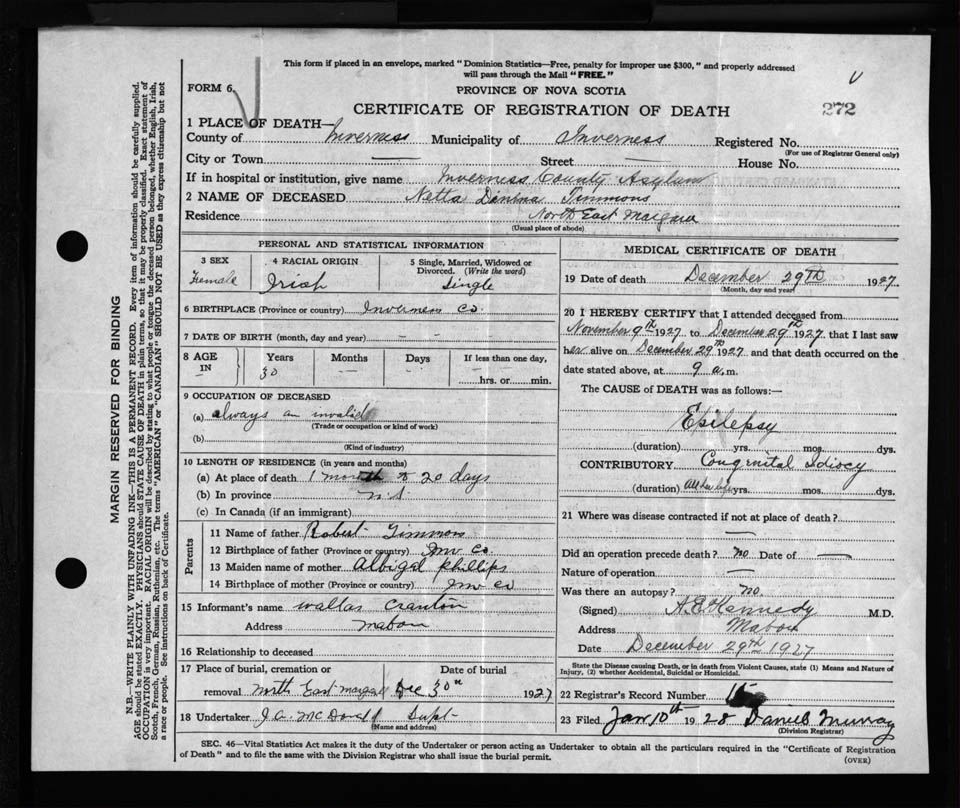 This form if placed in an envelope, marked "Dominion Statistics—Free, penalty for improper use $300," and properly addressed
will pass through the Mail "FREE."
FORM 6.
PROVINCE OF NOVA SCOTIA
CERTIFICATE OF REGISTRATION OF DEATH
272
1 PLACE OF DEATH—
County of Inverness Municipality of Inverness Registered No.
(For use of Registrar General only)
City or Town — Street — House No.
If in hospital or institution, give name Inverness County Asylum
2 NAME OF DECEASED Netta Timmons
Residence North East Margaree
(Usual place of abode)
MARGIN RESERVED FOR BINDING
N.B.—WRITE PLAINLY WITH UNFADING INK—THIS IS A PERMANENT RECORD. Every item of information should be carefully supplied.
AGE should be stated EXACTLY. PHYSICIANS should STATE CAUSE OF DEATH in plain terms, so that it may be properly classified. Exact statement of
OCCUPATION is very important. RACIAL ORIGIN will be described by stating to what people or tongue the deceased person belonged, whether English, Irish,
Scotch, French, German, Russian, Ruthenian, etc. The terms "AMERICAN" or "CANADIAN" SHOULD NOT BE USED as they express citizenship but not
a race or people. See instructions on back of Certificate.
PERSONAL AND STATISTICAL INFORMATION
3 SEX 4 RACIAL ORIGIN 5 Single, Married, Widowed or
Divorced. (Write the word)
Female Irish Single
6 BIRTHPLACE (Province or country) Inverness Co.
7 DATE OF BIRTH (month, day and year) —
8 AGE IN Years Months Days If less than one day,
30 — — hrs. or min.
9 OCCUPATION OF DECEASED
(a) always an invalid
(Trade or occupation or kind of work)
(b)
(Kind of industry)
10 LENGTH OF RESIDENCE (in years and months)
(a) At place of death 1 month & 20 days
(b) In province N.S.
(c) In Canada (if an immigrant)
Parents
11 Name of father Robert Timmons
12 Birthplace of father (Province or country) Inv Co.
13 Maiden name of mother Abbigal Phillips
14 Birthplace of mother (Province or country) Inv co
15 Informant's name Wallas Cranton
Address Mabou
16 Relationship to deceased
17 Place of burial, cremation or Date of burial
removal North East Margaree Dec 30th 1927
18 Undertaker Supt
(Name and address)
MEDICAL CERTIFICATE OF DEATH
19 Date of death December 29th 1927
(Month, day and year)
20 I HEREBY CERTIFY that I attended deceased from
November 9th 1927 to December 29th 1927 that I last saw
her alive on December 29th 1927 and that death occurred on the
date stated above, at 9 a.m.
The CAUSE OF DEATH was as follows:—
Epilepsy
(duration) yrs. mos. dys.
CONTRIBUTORY Congenital Idiocy
(duration) All her life yrs. mos. dys.
21 Where was disease contracted if not at place of death?
—
Did an operation precede death? no Date of —
Nature of operation —
Was there an autopsy? no
(Signed) Kennedy M.D.
Address Mabou
Date December 29th 1927
State the Disease causing Death, or in death from Violent Causes, state (1) Means and Nature of
Injury, (2) whether Accidental, Suicidal or Homicidal.
22 Registrar's Record Number
23 Filed Jan 10th 1928 Daniel Murray
(Division Registrar)
SEC. 46—Vital Statistics Act makes it the duty of the Undertaker or person acting as Undertaker to obtain all the particulars required in the "Certificate of Registration
of Death" and to file the same with the Division Registrar who shall issue the burial permit.
(OVER)